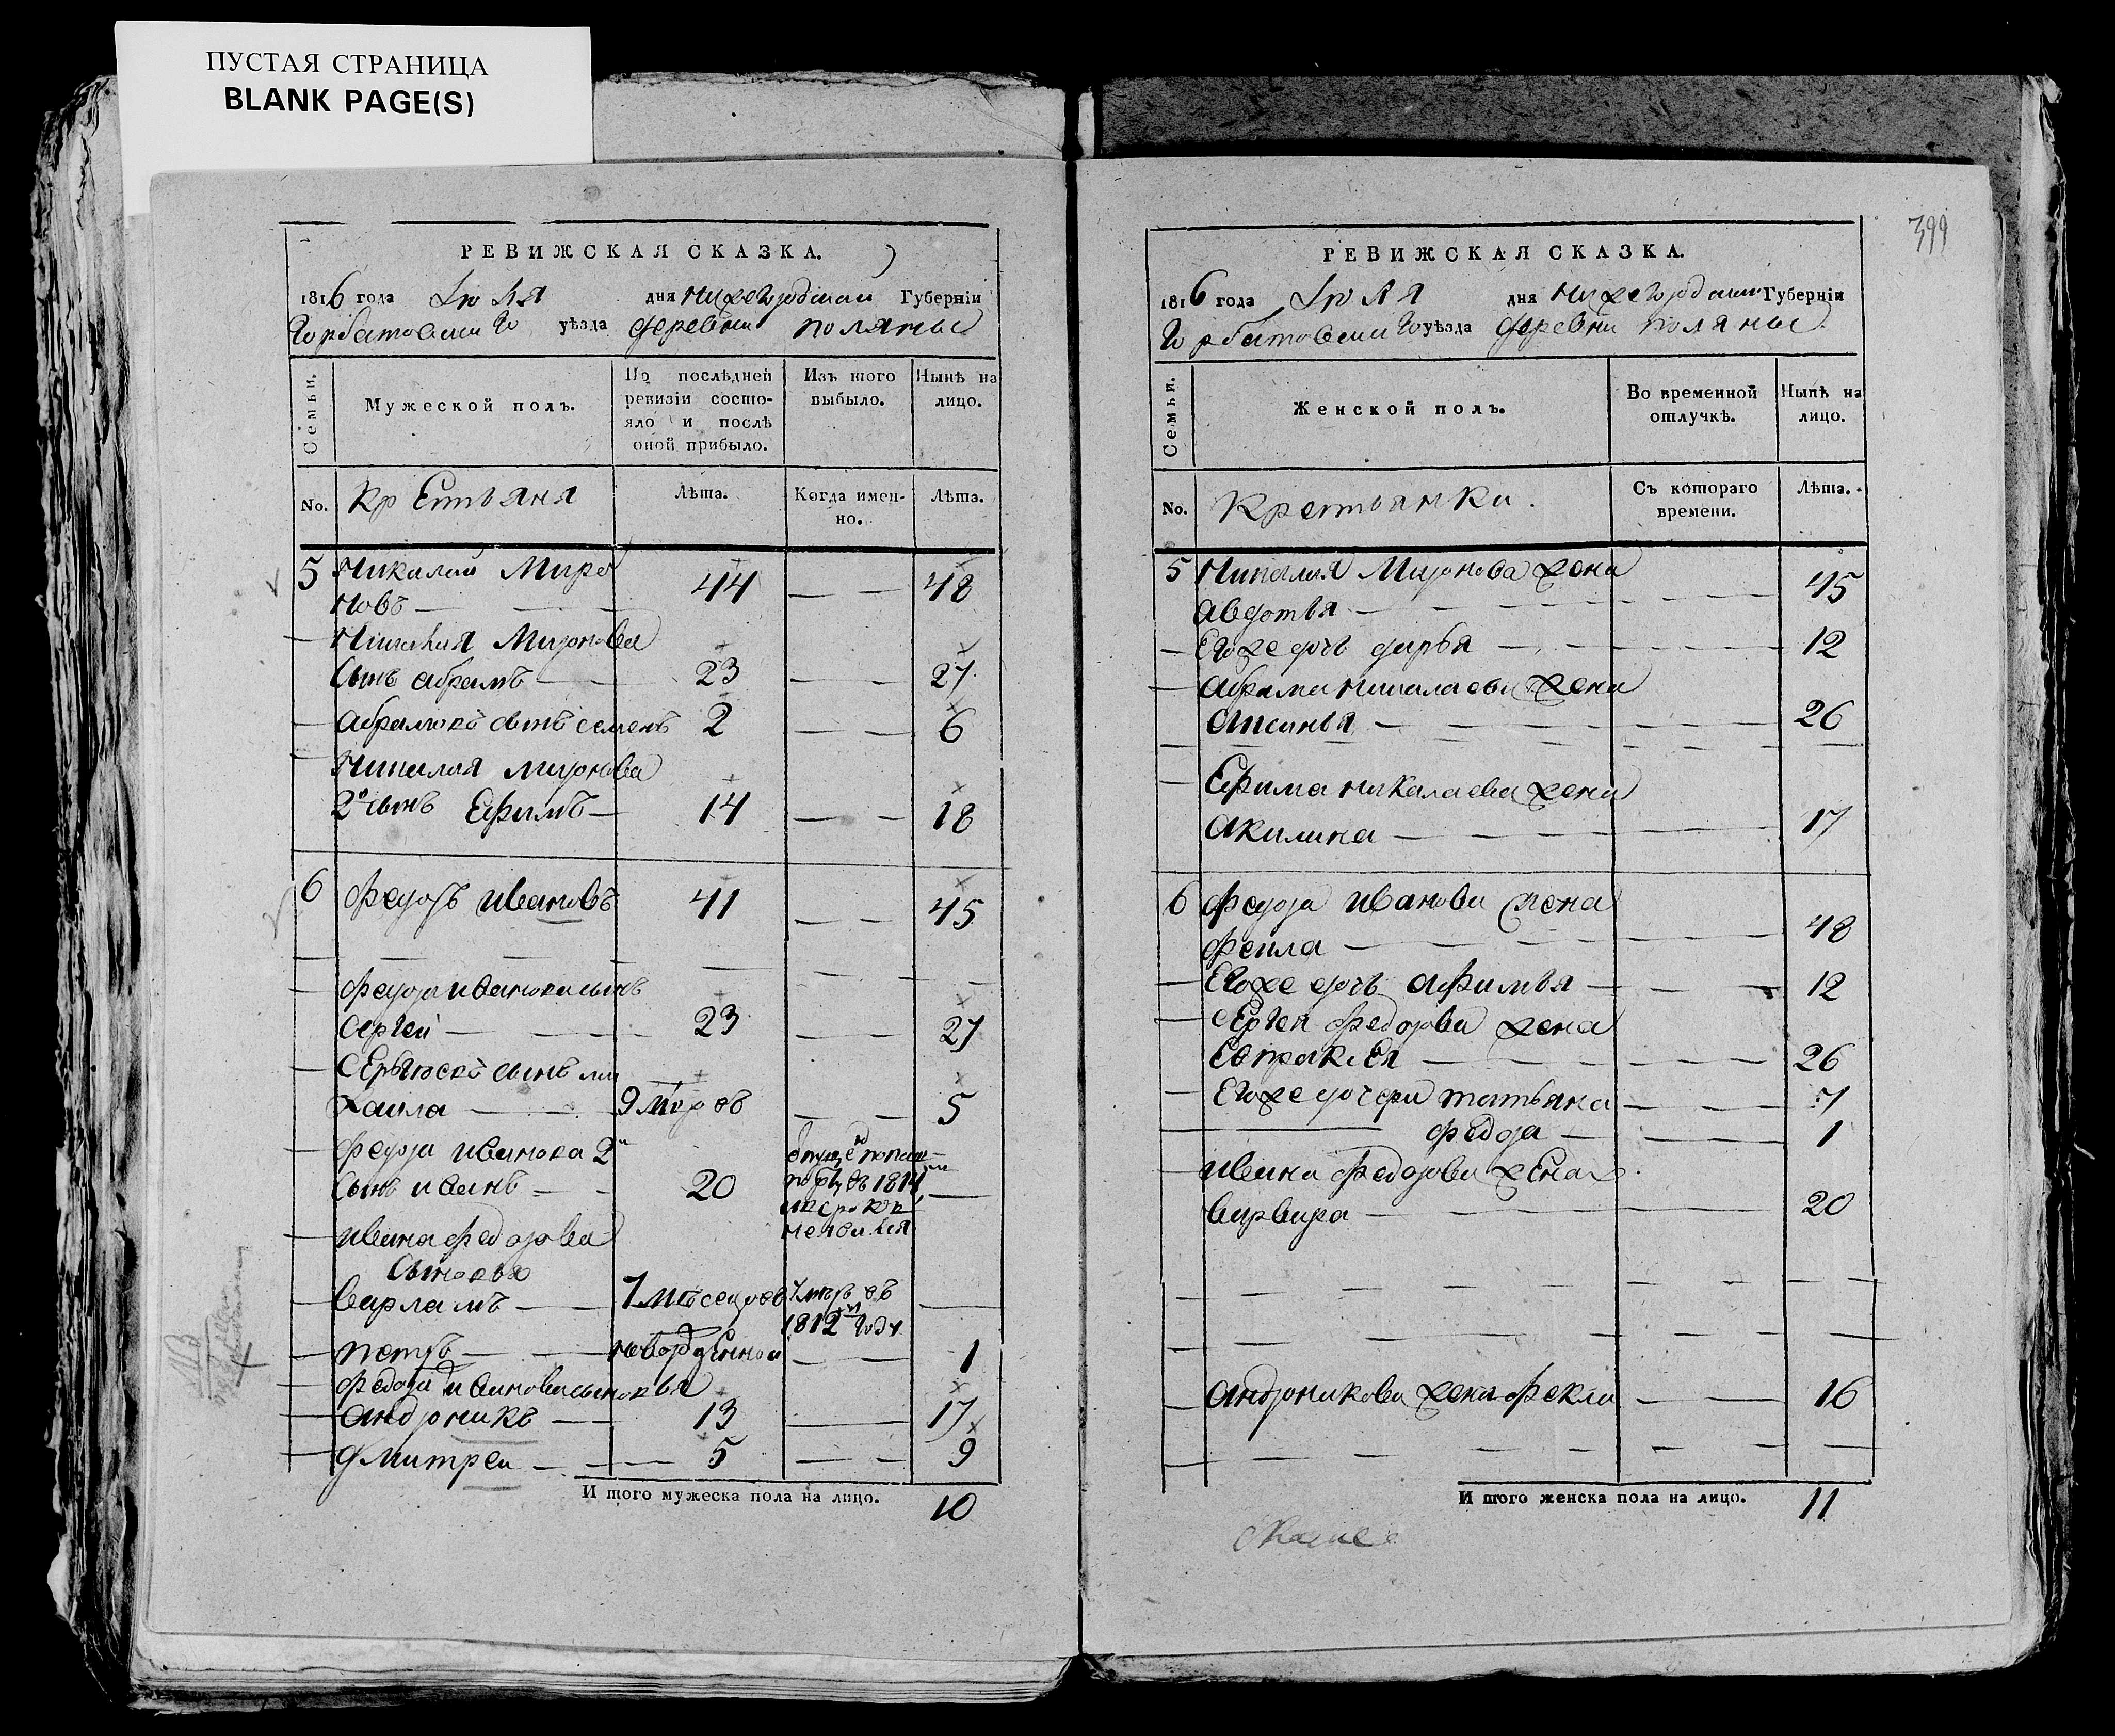 ПУСТАЯ СТРАНИЦА
BLANK PAGE(S)
РЕВИЖСКАЯ СКАЗКА.
1816 года Июля дня нижегородской Губерніи
Горбатовскаго уѣзда деревни поляны
Семьи. Мужеской полъ. По послѣдней ревизіи состояло и послѣ оной прибыло. Изъ того выбыло. Нынѣ на лицо.
No. КрЕстьяня Лѣта. Когда именно. Лѣта.
5 Николай Миро
новъ — 44 — 48
Николая Миронова
сынъ абрамъ — 23 — 27
абрамовъ сынъ семенъ 2 — 6
Николая миронова
2й сынъ Ефимъ — 14 — 18
6 Федоръ ивановъ 41 — 45
Федора иванова сынъ
сергей — 23 — 27
сЕргѣевъ сынъ ми
хаила — 9 — 5
федора иванова 2й
сынъ иванъ — 20 1814
ивана федорова
сыновья
варламъ — 7 месецовъ 1812 году
петръ — новорожденной — 1
федора иванова сыновья
андроникъ — 13 — 17
дмитреи — 5 — 9
И того мужеска пола на лицо. 10
399
РЕВИЖСКАЯ СКАЗКА.
1816 года Июля дня нижегородской Губерніи
Горбатовскаго уѣзда деревни поляны
Семьи. Женской полъ. Во временной отлучкѣ. Нынѣ на лицо.
No. Крестьянки. Съ котораго времени. Лѣта.
5 Николая Миронова жена
авдотья — 45
Его же дочь дарья — 12
абрама николаева жена
аксинья — 26
Ефима николаева жена
акилина — 17
6 федора иванова жена
фекла — 48
Его же дочь афимья — 12
сЕргея федорова жена
Евпраксея — 26
Его же дочери татьяна — 7
федора — 1
ивана федорова жЕна
варвара — 20
андроникова жена фекла — 16
И того женска пола на лицо. 11